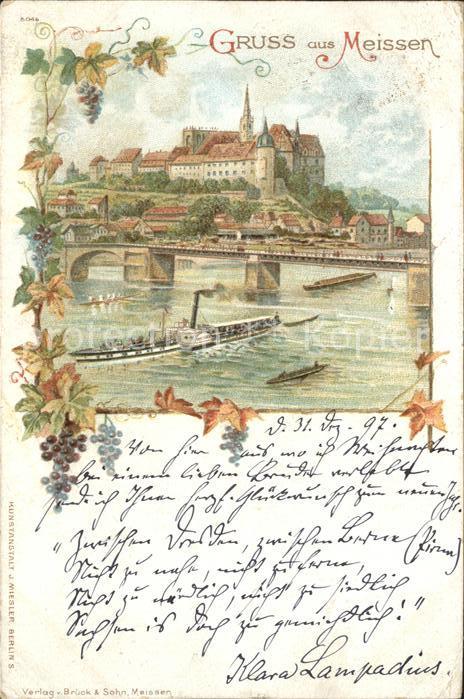 5046
GRUSS aus MEISSEN
d. 31. Dez. 97.
Von hier aus wo ich Weihnachten
bei einem lieben Bruder verlebte
sende ich Ihnen herzl. Glückwunsch zum neuen Jhr.
"Zwischen Dresden, zwischen Berne (Pirna)
Nicht zu nahe, nicht zu ferne,
Nicht zu nördlich, nicht zu siedlich
Sachsen is doch zu gemiedlich!"
Klara Lampadius.
KUNSTANSTALT J. MIESLER, BERLIN S.
Verlag v. Brück & Sohn, Meissen